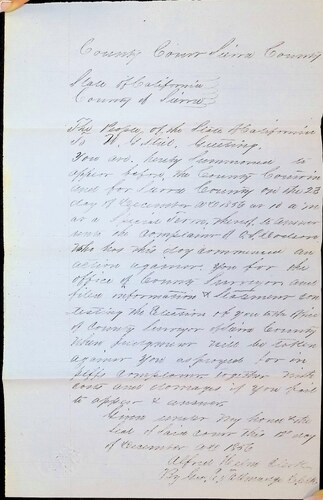 County Court Sierra County
State of California
County of Sierra
The People of the State of California
To W. G. Still Greeting.
You are hereby Summoned to
appear before the County Court in
and for Sierra County on the 23
day of December AD 1856 at 10 a.m
at a Special Term, thereof to answer
unto the complaint of
who has this day commenced an
action against you for the
office of County Surveyor and
filed information & Statement con
testing the Election of you to the Office
of County Surveyor of said County
when judgment will be taken
against you as prayed for in
complaint together with
costs and damages if you fail
to appear & answer.
Given under my hand & the
Seal of said court this 1st day
of December AD 1856
Alfred Helm Clerk
By